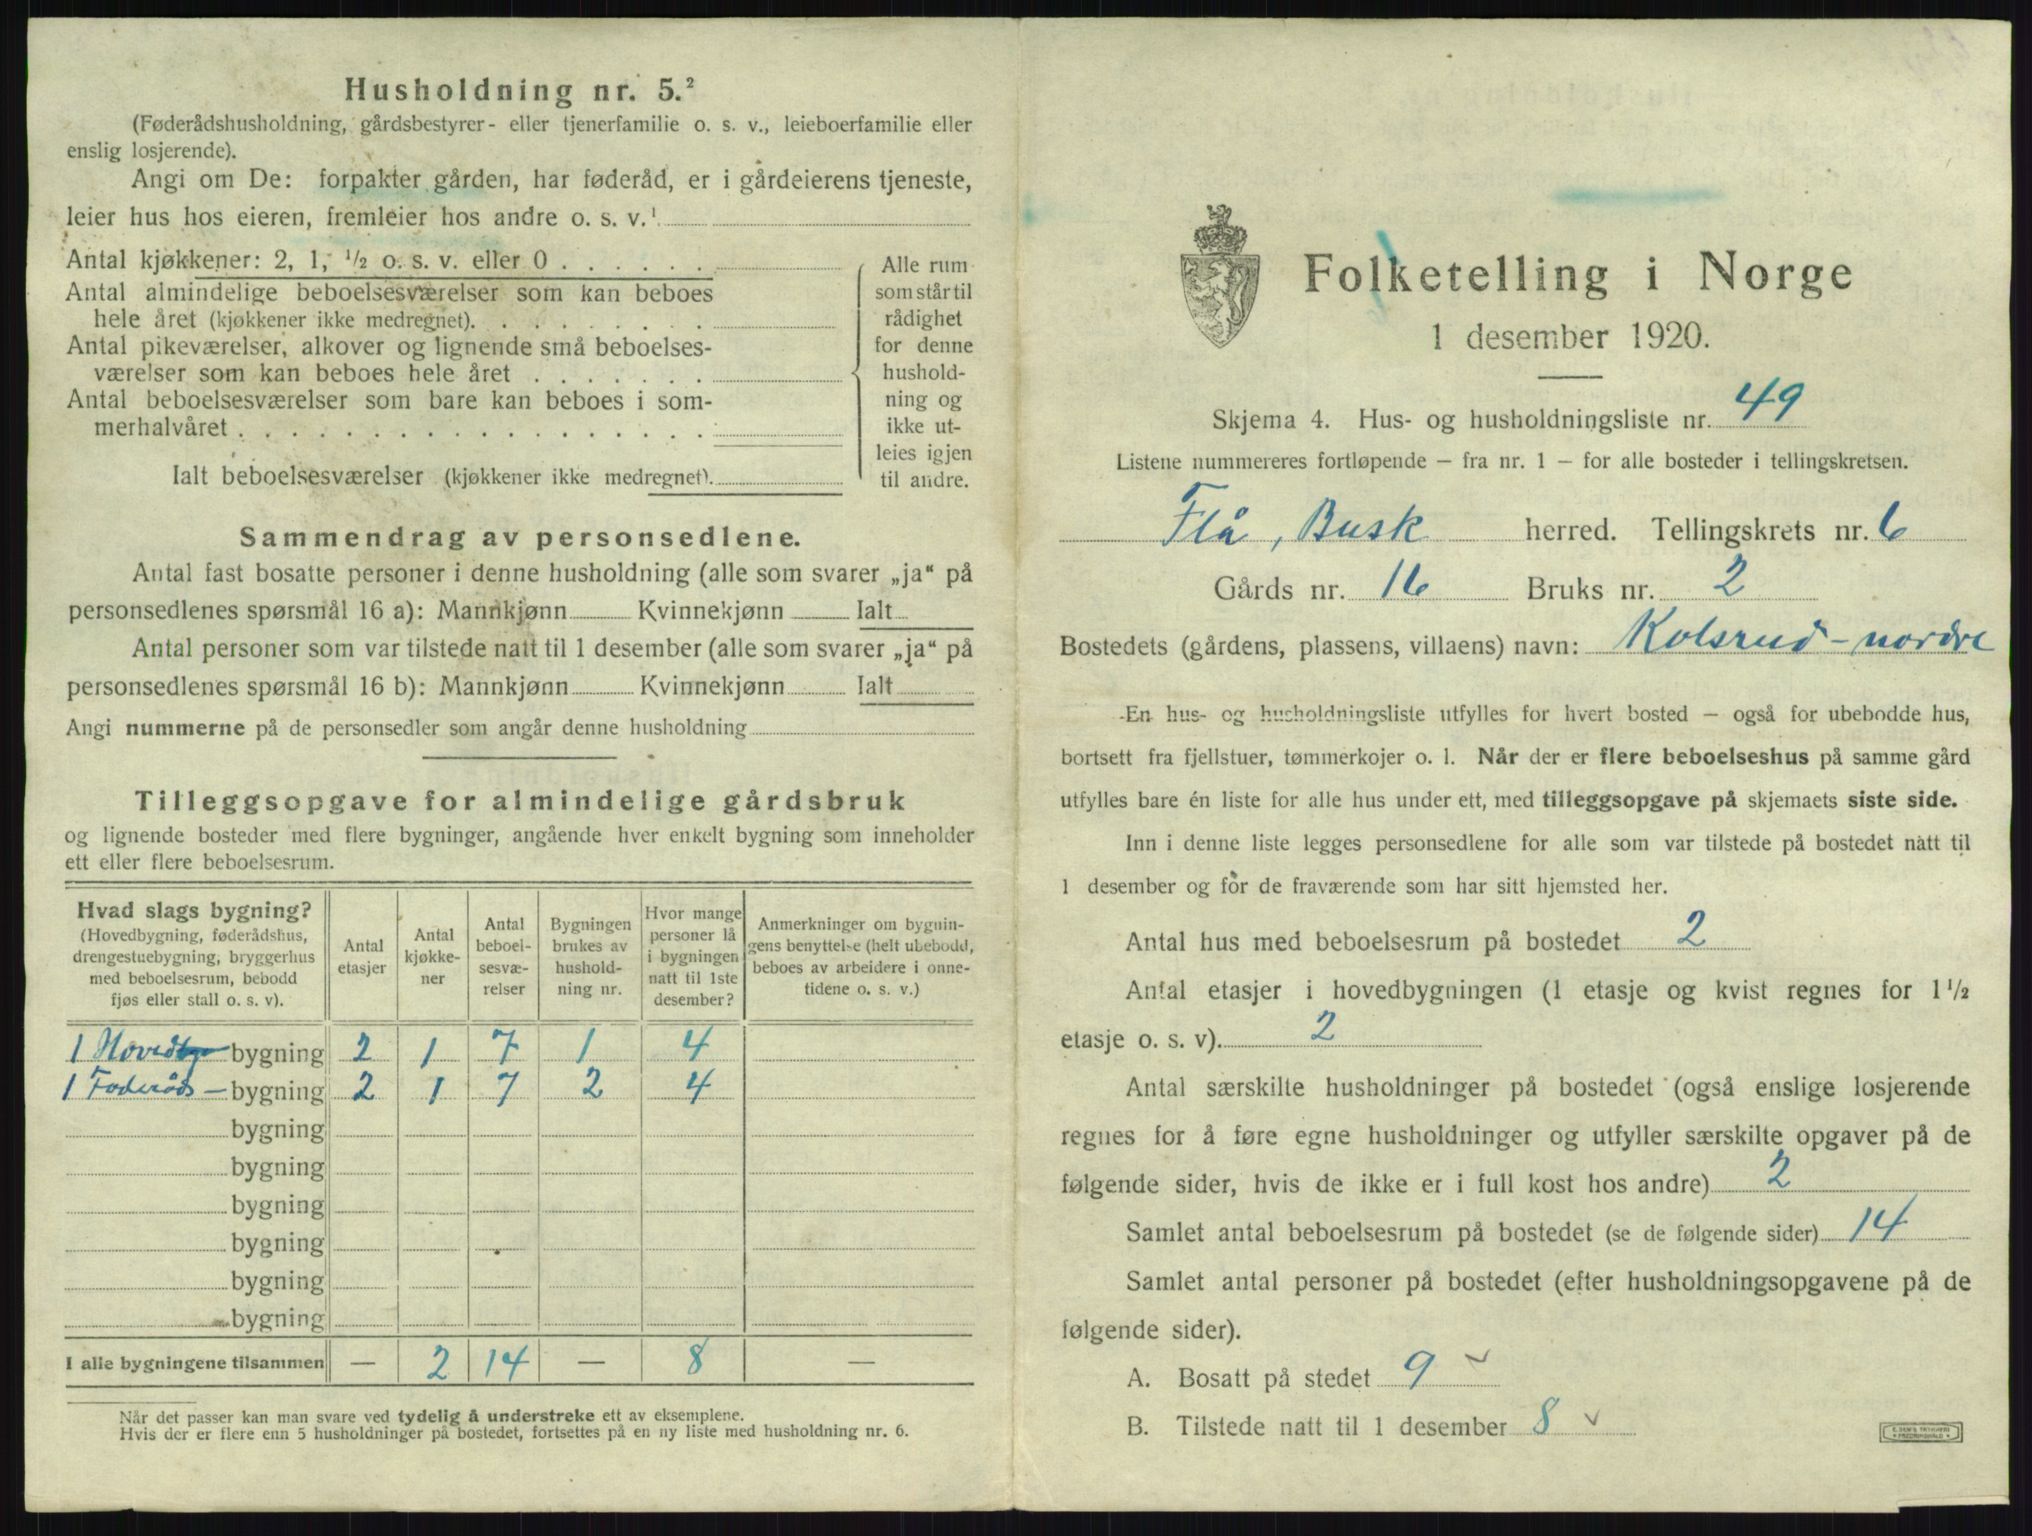 Husholdning nr. 5.²
(Føderådshusholdning, gårdsbestyrer- eller tjenerfamilie o. s. v., leieboerfamilie eller
enslig losjerende).
Angi om De: forpakter gården, har føderåd, er i gårdeierens tjeneste,
leier hus hos eieren, fremleier hos andre o. s. v.¹
Antal kjøkkener: 2, 1, ½ o. s. v. eller 0
Antal almindelige beboelsesværelser som kan beboes
hele året (kjøkkener ikke medregnet).
Antal pikeværelser, alkover og lignende små beboelses-
værelser som kan beboes hele året
Antal beboelsesværelser som bare kan beboes i som-
merhalvåret
Ialt beboelsesværelser (kjøkkener ikke medregnet).
Alle rum
som står til
rådighet
for denne
hushold-
ning og
ikke ut-
leies igjen
til andre.
Sammendrag av personsedlene.
Antal fast bosatte personer i denne husholdning (alle som svarer „ja“ på
personsedlenes spørsmål 16 a): Mannkjønn Kvinnekjønn Ialt
Antal personer som var tilstede natt til 1 desember (alle som svarer „ja“ på
personsedlenes spørsmål 16 b): Mannkjønn Kvinnekjønn Ialt
Angi nummerne på de personsedler som angår denne husholdning
Tilleggsopgave for almindelige gårdsbruk
og lignende bosteder med flere bygninger, angående hver enkelt bygning som inneholder
ett eller flere beboelsesrum.
Hvad slags bygning?
(Hovedbygning, føderådshus,
drengestuebygning, bryggerhus
med beboelsesrum, bebodd
fjøs eller stall o. s. v).
Antal
etasjer
Antal
kjøkke-
ner
Antal
beboel-
sesvæ-
relser
Bygningen
brukes av
hushold-
ning nr.
Hvor mange
personer lå
i bygningen
natt til 1ste
desember?
Anmerkninger om bygnin-
gens benyttelse (helt ubebodd,
beboes av arbeidere i onne-
tidene o. s. v.)
1 Hovedby bygning 2 1 7 1 4
1 Foderåds- bygning 2 1 7 2 4
bygning
bygning
bygning
bygning
bygning
bygning
I alle bygningene tilsammen — 2 14 — 8 —
Når det passer kan man svare ved tydelig å understreke ett av eksemplene.
Hvis der er flere enn 5 husholdninger på bostedet, fortsettes på en ny liste med husholdning nr. 6.
Folketelling i Norge
1 desember 1920.
Skjema 4. Hus- og husholdningsliste nr. 49
Listene nummereres fortløpende — fra nr. 1 — for alle bosteder i tellingskretsen.
Flå, Busk herred. Tellingskrets nr. 6
Gårds nr. 16 Bruks nr. 2
Bostedets (gårdens, plassens, villaens) navn: Kolsrud-nordre
En hus- og husholdningsliste utfylles for hvert bosted — også for ubebodde hus,
bortsett fra fjellstuer, tømmerkojer o. l. Når der er flere beboelseshus på samme gård
utfylles bare én liste for alle hus under ett, med tilleggsopgave på skjemaets siste side.
Inn i denne liste legges personsedlene for alle som var tilstede på bostedet natt til
1 desember og for de fraværende som har sitt hjemsted her.
Antal hus med beboelsesrum på bostedet 2
Antal etasjer i hovedbygningen (1 etasje og kvist regnes for 1½
etasje o. s. v). 2
Antal særskilte husholdninger på bostedet (også enslige losjerende
regnes for å føre egne husholdninger og utfyller særskilte opgaver på de
følgende sider, hvis de ikke er i full kost hos andre) 2
Samlet antal beboelsesrum på bostedet (se de følgende sider) 14
Samlet antal personer på bostedet (efter husholdningsopgavene på de
følgende sider).
A. Bosatt på stedet 9
B. Tilstede natt til 1 desember 8